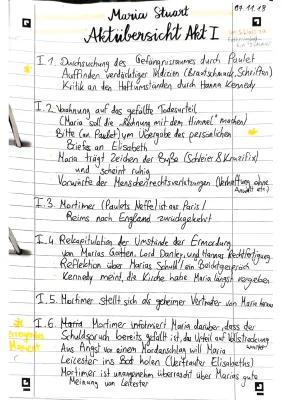 07.11.18
Maria Stuart
Aktübersicht Akt I
I.1. Durchsuchung des Gefängnisraumes durch Paulet
Auffinden verdächtiger Indizien (Brautschmuck, Schriften)
Kritik an den Haftumständen durch Hanna Kennedy
I.2. Vorahnung auf das gefällte Todesurteil
(Maria soll die "Rechnung mit dem Himmel" machen)
Bitte (an Paulet) um Übergabe des persönlichen
Briefes an Elisabeth
Maria trägt Zeichen der Buße (Schleier & Kruzifix)
und scheint ruhig
Vorwürfe der Menschenrechtsverletzungen (Verhaftung ohne
Anwalt etc.)
I.3. Mortimer (Paulets Neffe) ist aus Paris/
Reims nach England zurückgekehrt
I.4. Rekapitulation der Umstände der Ermordung
von Marias Gatten, Lord Danley, und Hannas Rechtfertigung
Reflektion über Marias Schuld/ein Beichtgespräch
Kennedy meint, die Kirche habe Maria längst vergeben
I.5. Mortimer stellt sich als geheimer Vertrauter von Maria heraus
I.6. Mortimer informiert Maria darüber, dass der
Schuldspruch bereits gefällt ist, das Urteil auf Vollstreckung
wartet
Aus Angst vor einem Mordanschlag will Maria
Leicester ins Boot holen (Vertrauter Elisabeths)
Mortimer ist unangenehm überrascht über Marias gute
Meinung von Leicester
Erregendes
Moment